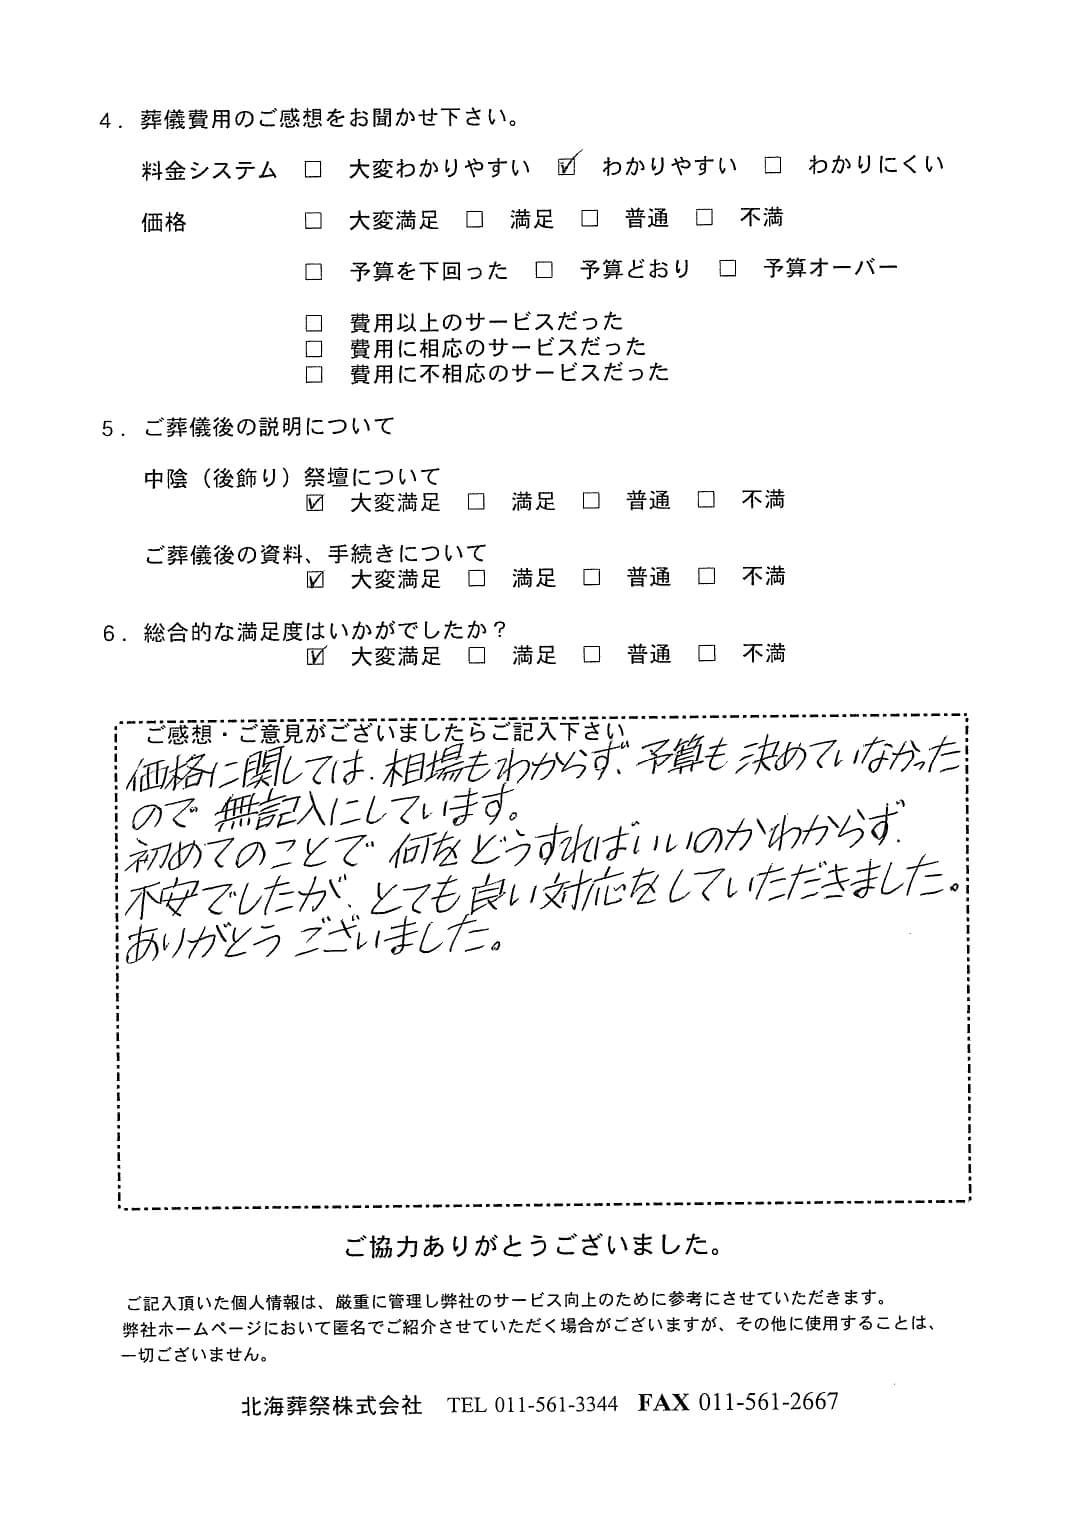 4．葬儀費用のご感想をお聞かせ下さい。
料金システム □ 大変わかりやすい ☑ わかりやすい □ わかりにくい
価格 □ 大変満足 □ 満足 □ 普通 □ 不満
□ 予算を下回った □ 予算どおり □ 予算オーバー
□ 費用以上のサービスだった
□ 費用に相応のサービスだった
□ 費用に不相応のサービスだった
5．ご葬儀後の説明について
中陰（後飾り）祭壇について
☑ 大変満足 □ 満足 □ 普通 □ 不満
ご葬儀後の資料、手続きについて
☑ 大変満足 □ 満足 □ 普通 □ 不満
6．総合的な満足度はいかがでしたか？
☑ 大変満足 □ 満足 □ 普通 □ 不満
ご感想・ご意見がございましたらご記入下さい
価格に関しては、相場もわからず、予算も決めていなかった
ので無記入にしています。
初めてのことで何をどうすればいいのかわからず、
不安でしたが、とても良い対応をしていただきました。
ありがとうございました。
ご協力ありがとうございました。
ご記入頂いた個人情報は、厳重に管理し弊社のサービス向上のために参考にさせていただきます。
弊社ホームページにおいて匿名でご紹介させていただく場合がございますが、その他に使用することは、
一切ございません。
北海葬祭株式会社 TEL 011-561-3344 FAX 011-561-2667